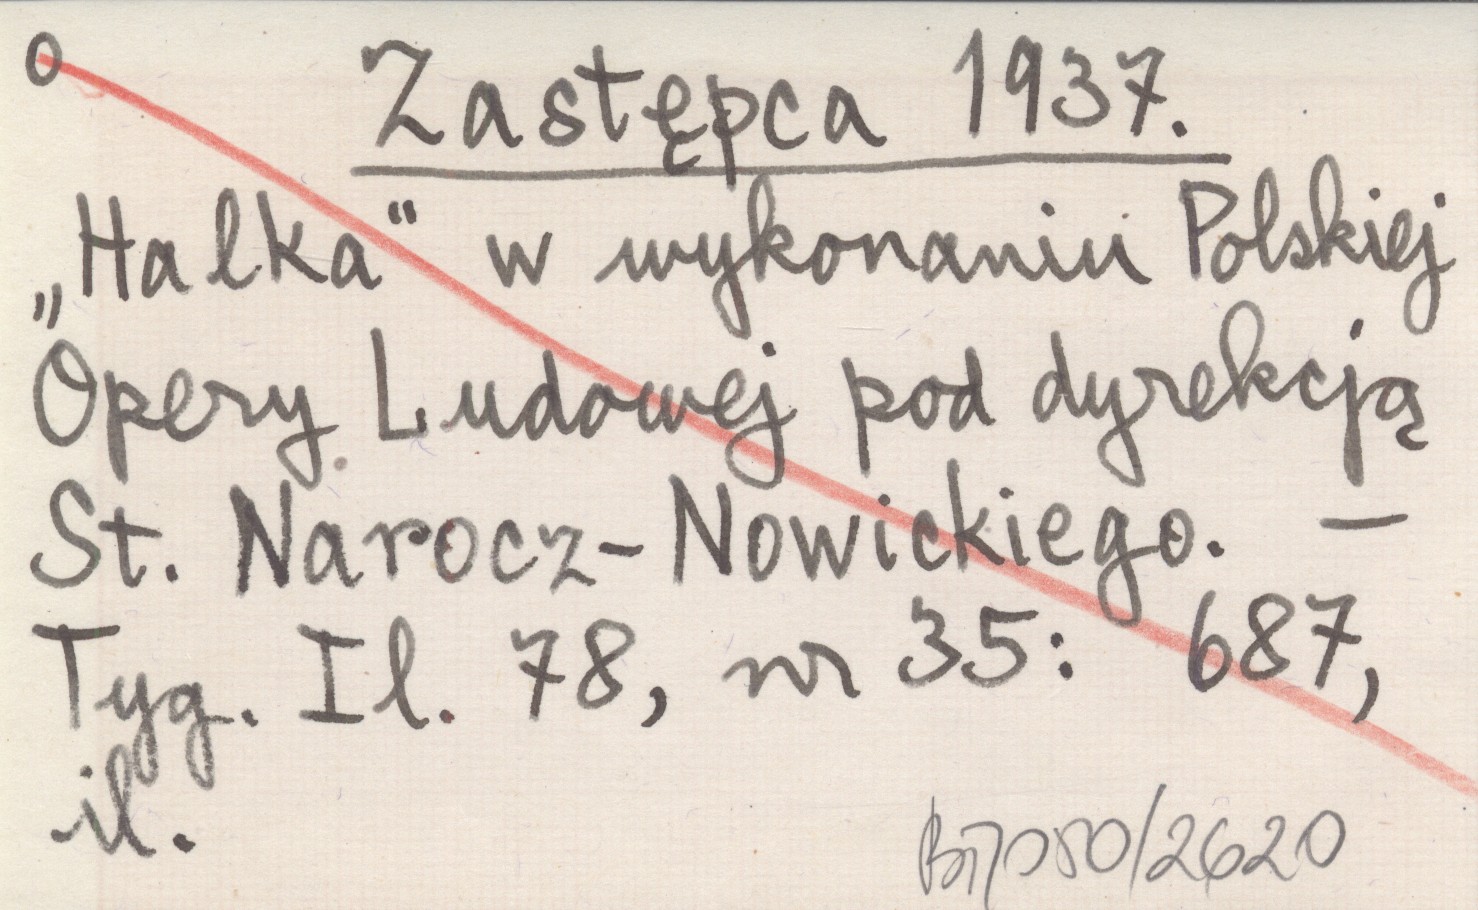 o Zastępca 1937.
„Halka" w wykonaniu Polskiej
Opery Ludowej pod dyrekcją
St. Narocz-Nowickiego. —
Tyg. Il. 78, nr 35: 687,
il.